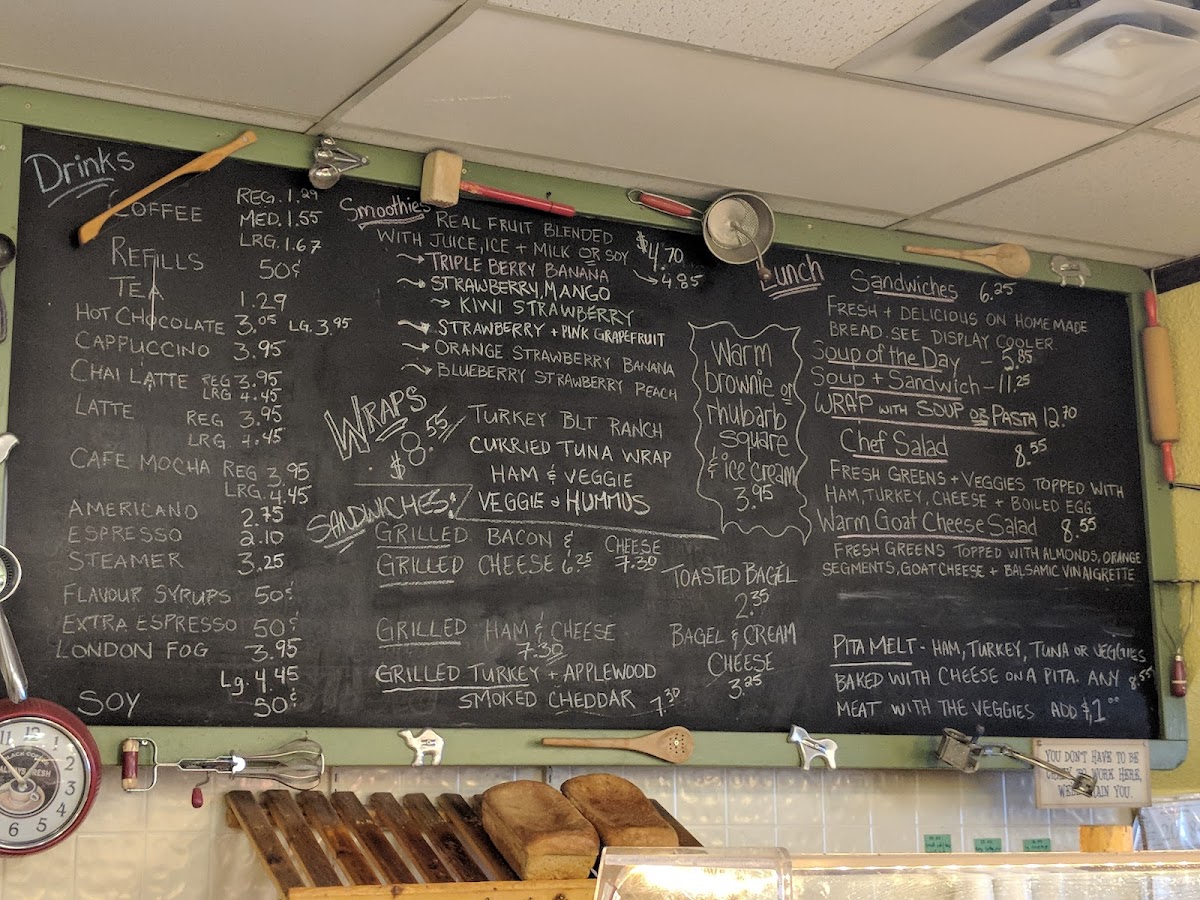 Drinks
COFFEE REG. 1.29
MED. 1.55
LRG. 1.67
REFILLS 50¢
TEA 1.29
HOT CHOCOLATE 3.05 LG. 3.95
CAPPUCCINO 3.95
CHAI LATTE REG 3.95
LRG 4.45
LATTE REG 3.95
LRG 4.45
CAFE MOCHA REG 3.95
LRG. 4.45
AMERICANO 2.75
ESPRESSO 2.10
STEAMER 3.25
FLAVOUR SYRUPS 50¢
EXTRA ESPRESSO 50¢
LONDON FOG 3.95
Lg. 4.45
SOY 50¢
Smoothies REAL FRUIT BLENDED
WITH JUICE, ICE + MILK OR SOY $4.70
→ 4.85
→ TRIPLE BERRY BANANA
→ STRAWBERRY, MANGO
→ KIWI STRAWBERRY
→ STRAWBERRY + PINK GRAPEFRUIT
→ ORANGE STRAWBERRY BANANA
→ BLUEBERRY STRAWBERRY PEACH
WRAPS
$8.55
TURKEY BLT RANCH
CURRIED TUNA WRAP
HAM & VEGGIE
VEGGIE & HUMMUS
SANDWICHES!
GRILLED BACON & CHEESE 7.30
GRILLED CHEESE 6.25
GRILLED HAM & CHEESE
7.30
GRILLED TURKEY + APPLEWOOD
SMOKED CHEDDAR 7.30
TOASTED BAGEL
2.35
BAGEL & CREAM
CHEESE
3.25
Warm
brownie or
rhubarb
square
& ice cream
3.95
Lunch
Sandwiches 6.25
FRESH + DELICIOUS ON HOMEMADE
BREAD. SEE DISPLAY COOLER
Soup of the Day - 5.85
Soup + Sandwich - 11.25
WRAP WITH SOUP OR PASTA 12.70
Chef Salad 8.55
FRESH GREENS + VEGGIES TOPPED WITH
HAM, TURKEY, CHEESE + BOILED EGG
Warm Goat Cheese Salad 8.55
FRESH GREENS TOPPED WITH ALMONDS, ORANGE
SEGMENTS, GOAT CHEESE + BALSAMIC VINAIGRETTE
PITA MELT - HAM, TURKEY, TUNA OR VEGGIES
BAKED WITH CHEESE ON A PITA. ANY 8.55
MEAT WITH THE VEGGIES ADD $1.00
YOU DON'T HAVE TO BE
CRAZY TO WORK HERE,
WE'LL TRAIN YOU.
11 12 1 2 3 4 5 6
FRESH